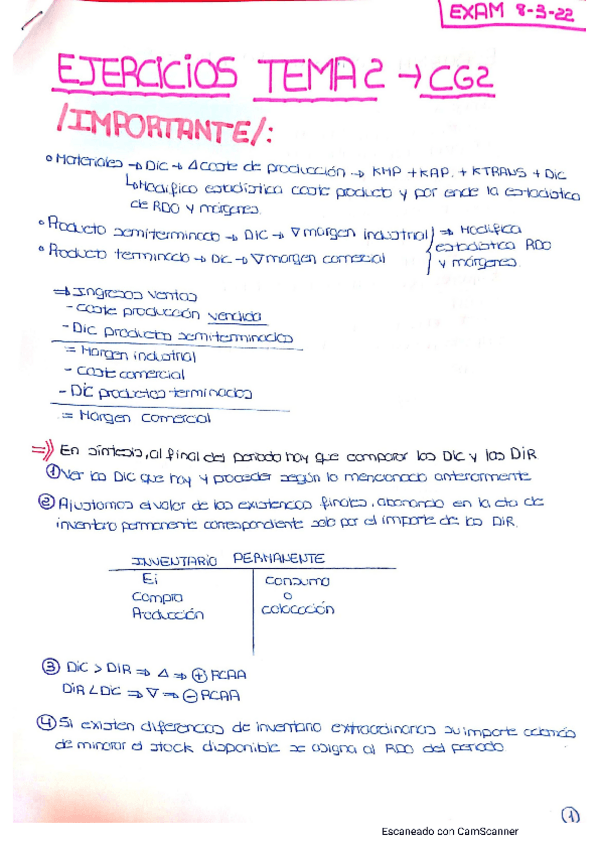 EXAM 8-3-22
EJERCICIOS TEMA 2 → CG2
/IMPORTANTE/:
• Materiales → DIC → Δ coste de producción → KMP + KAP. + KTRANS + DIC
↳ Modifico estadística coste producto y por ende la estadística
de RDO y márgenes.
• Producto semiterminado → DIC → ∇ margen industrial ⇒ Modifica
• Producto terminado → DIC → ∇ margen comercial
estadística RDO
y márgenes.
⇒ Ingresos ventas
- coste producción vendida
- DIC productos semiterminados
= Margen industrial
- coste comercial
- DIC productos terminados
= Margen comercial
⇒ En síntesis, al final del periodo hay que comparar los DIC y las DIR
① Ver las DIC que hay y proceder según lo mencionado anteriormente
② Ajustamos el valor de las existencias finales, abonando en la cta de
inventario permanente correspondiente solo por el importe de las DIR.
INVENTARIO PERMANENTE
Ei
Compra
Producción
Consumo
o
colocación
③ DIC > DIR ⇒ Δ ⇒ ⊕ RCAA
DIR < DIC ⇒ ∇ ⇒ ⊖ RCAA
④ Si existen diferencias de inventario extraordinarias su importe además
de minorar el stock disponible se asigna al RDO del periodo
①
Escaneado con CamScanner